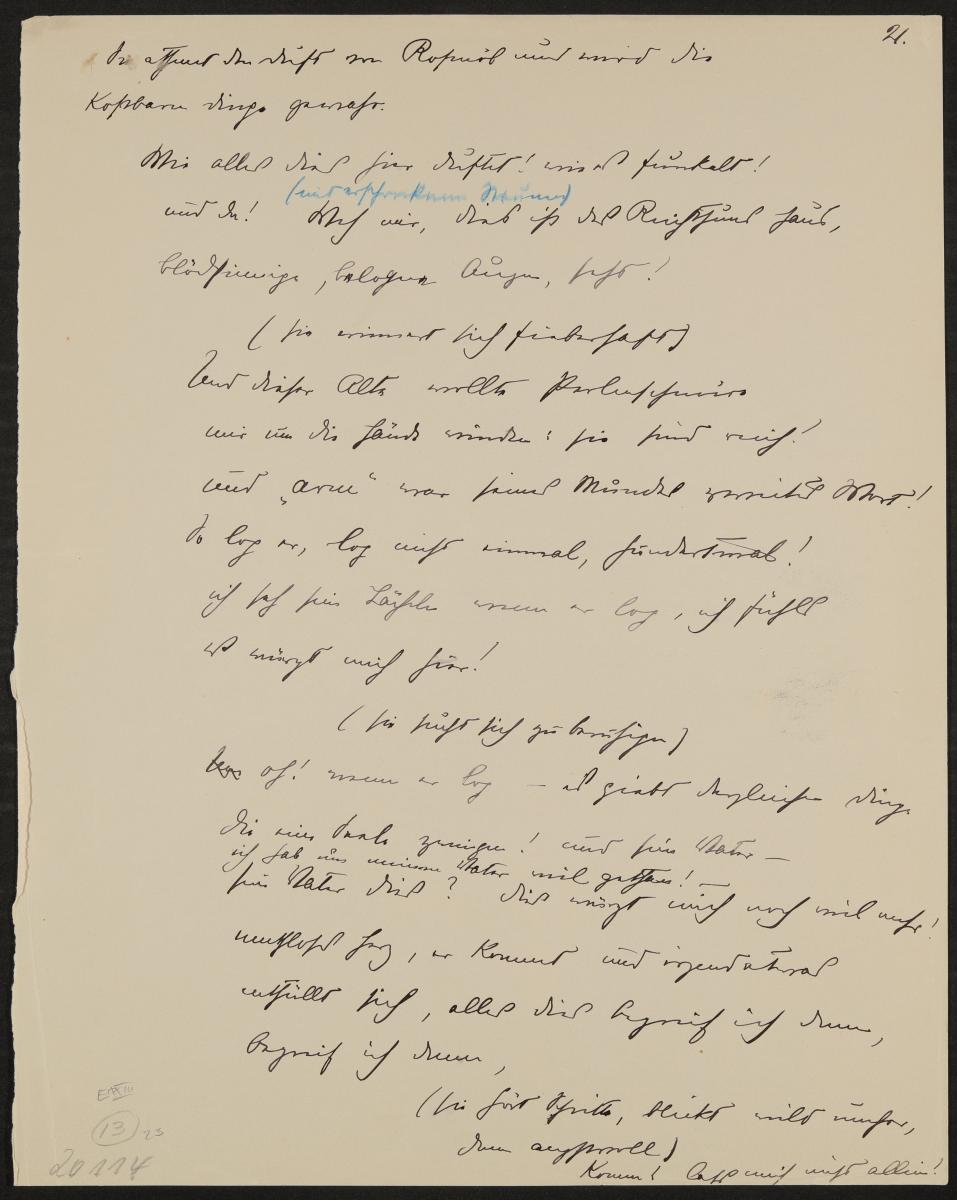 21.
Sie athmet den Duft von Rosenöl und wird die
kostbaren Dinge gewahr.
Wie alles dies hier duftet! wie es funkelt!
(mit erschrockenem Staunen)
und da! Weh mir, dies ist des Reichthums Haus,
blödsinnige, belogne Augen, seht!
(sie erinnert sich fieberhaft)
Und dieser Alte wollte Perlenschnüre
mir um die Hände winden: sie sind reich!
und „arm“ war seines Mundes zweites Wort!
So log er, log nicht einmal, hundertmal!
ich seh sein Lächeln wenn er log, ich fühls
es würgt mich hier!
(sie sucht sich zu beruhigen)
oh! wenn er log – es giebt dergleichen Dinge
die eine Seele zwingen! und sein Vater –
ich hab um meinen Vater viel gethan!
sein Vater dies? Dies würgt mich noch viel mehr!
muthloses Herz, er kommt und irgend etwas
enthüllt sich, alles dies begreif ich dann,
begreif ich dann,
(sie hört Schritte, blickt wild umher,
dann angstvoll)
Komm! lass mich nicht allein!
E III
13 23
20114